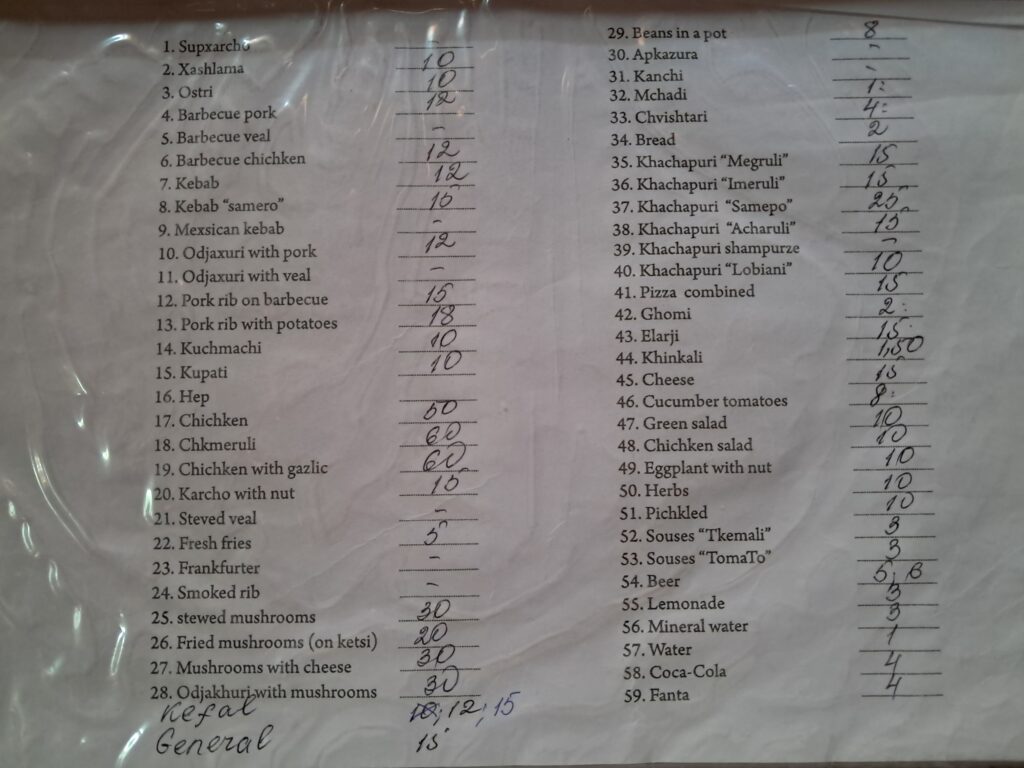 1. Supxarcho
2. Xashlama 10
3. Ostri 10
4. Barbecue pork 12
5. Barbecue veal -
6. Barbecue chichken 12
7. Kebab 12
8. Kebab “samero” 15
9. Mexsican kebab -
10. Odjaxuri with pork 12
11. Odjaxuri with veal -
12. Pork rib on barbecue 15
13. Pork rib with potatoes 18
14. Kuchmachi 10
15. Kupati 10
16. Hep
17. Chichken 50
18. Chkmeruli 60
19. Chichken with gazlic 60
20. Karcho with nut 15
21. Steved veal -
22. Fresh fries 5
23. Frankfurter -
24. Smoked rib -
25. stewed mushrooms 30
26. Fried mushrooms (on ketsi) 20
27. Mushrooms with cheese 30
28. Odjakhuri with mushrooms 30
Kefal 10; 12; 15
General 15
29. Beans in a pot 8
30. Apkazura -
31. Kanchi -
32. Mchadi 1:
33. Chvishtari 4:
34. Bread 2
35. Khachapuri “Megruli” 15
36. Khachapuri “Imeruli” 15
37. Khachapuri “Samepo” 25
38. Khachapuri “Acharuli” 15
39. Khachapuri shampurze -
40. Khachapuri “Lobiani” 10
41. Pizza combined 15
42. Ghomi 2:
43. Elarji 15
44. Khinkali 1,50
45. Cheese 15
46. Cucumber tomatoes 8:
47. Green salad 10
48. Chichken salad 10
49. Eggplant with nut 10
50. Herbs 10
51. Pichkled 10
52. Souses “Tkemali” 3
53. Souses “TomaTo” 3
54. Beer 5; 6
55. Lemonade 3
56. Mineral water 3
57. Water 1
58. Coca-Cola 4
59. Fanta 4